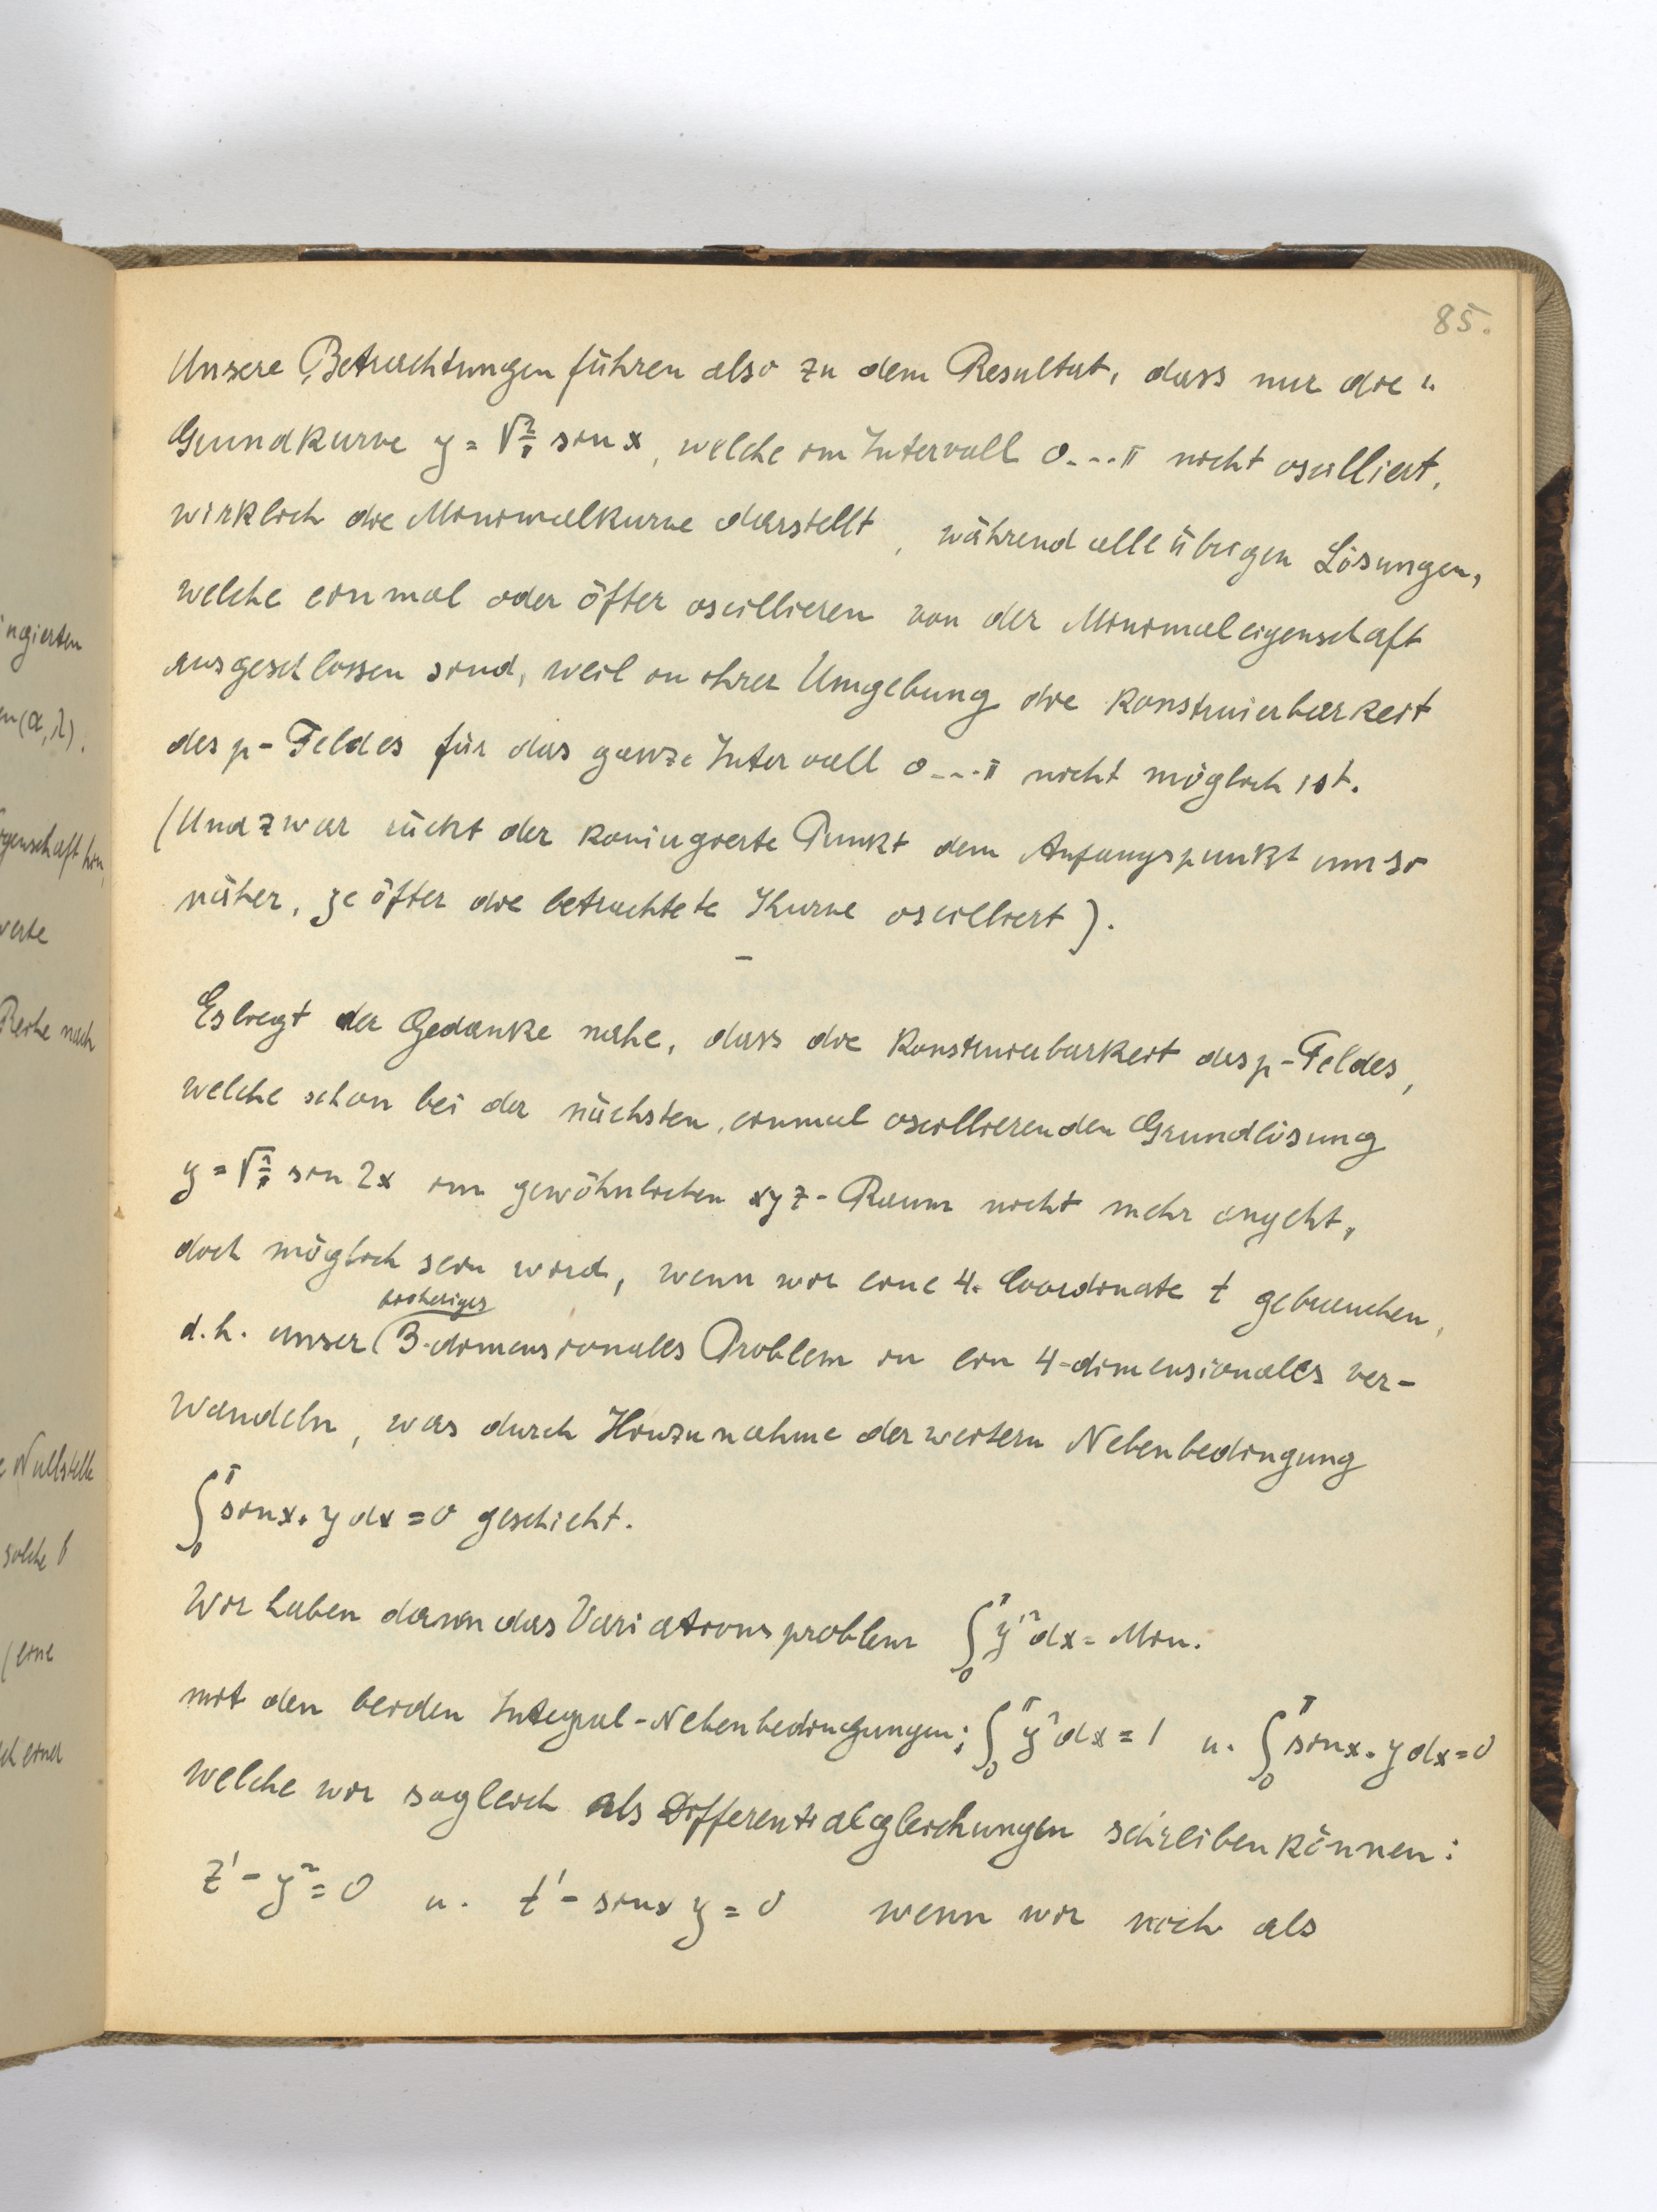 85.
Unsere Betrachtungen führen also zu dem Resultat, dass nur die 1.
Grundkurve y = √2/π sin x, welche im Intervall 0...π nicht oscilliert,
wirklich die Minimalkurve darstellt, während alle übrigen Lösungen,
welche einmal oder öfter oscillieren von der Minimaleigenschaft
ausgeschlossen sind, weil in ihrer Umgebung die Konstruierbarkeit
des p-Feldes für das ganze Intervall 0...π nicht möglich ist.
(Und zwar rückt der konjugierte Punkt dem Anfangspunkt umso
näher, je öfter die betrachtete Kurve oscilliert).
–
Es liegt der Gedanke nahe, dass die Konstruierbarkeit des p-Feldes,
welche schon bei der nächsten, einmal oscillierenden Grundlösung
y = √2/π sin 2x im gewöhnlichen xyz-Raum nicht mehr angeht,
doch möglich sein wird, wenn wir eine 4. Coordinate t gebrauchen,
bisheriges
d.h. unser 3-dimensionales Problem in ein 4-dimensionales ver-
wandeln, was durch Hinzunahme der weitern Nebenbedingung
∫₀^π sin x. y dx = 0 geschieht.
Wir haben dann das Variationsproblem ∫₀^π y'² dx = Min.
mit den beiden Integral-Nebenbedingungen; ∫₀^π y² dx = 1 u. ∫₀^π sin x. y dx = 0
welche wir sogleich als Differentialgleichungen schreiben können:
z' - y² = 0 u. t' - sin x y = 0 wenn wir noch als
ngierten
en (α, λ).
genschaft hin,
werte
Reihe nach
e Nullstelle
solche b
(eine